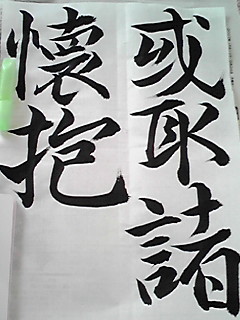 或取諸
懐抱